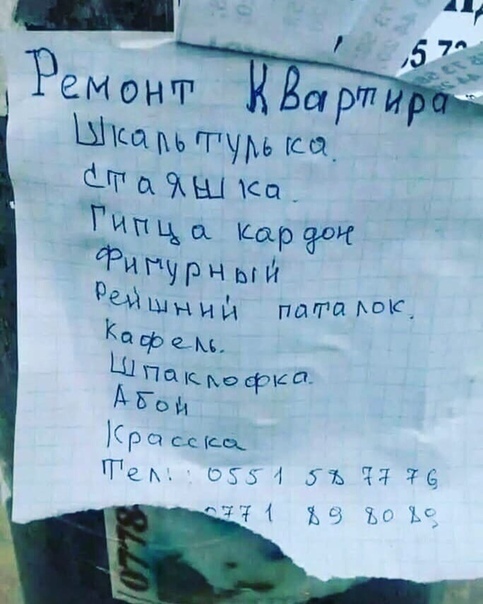 5 72
Ремонт Квартира
Шкальтулька.
Стаяшка.
Гипца кардон
Фигурный
Рейшний паталок.
Кафель.
Шпаклофка.
Абой
Красска
Тел: 0551 58 77 76
0771 89 80 89
0778